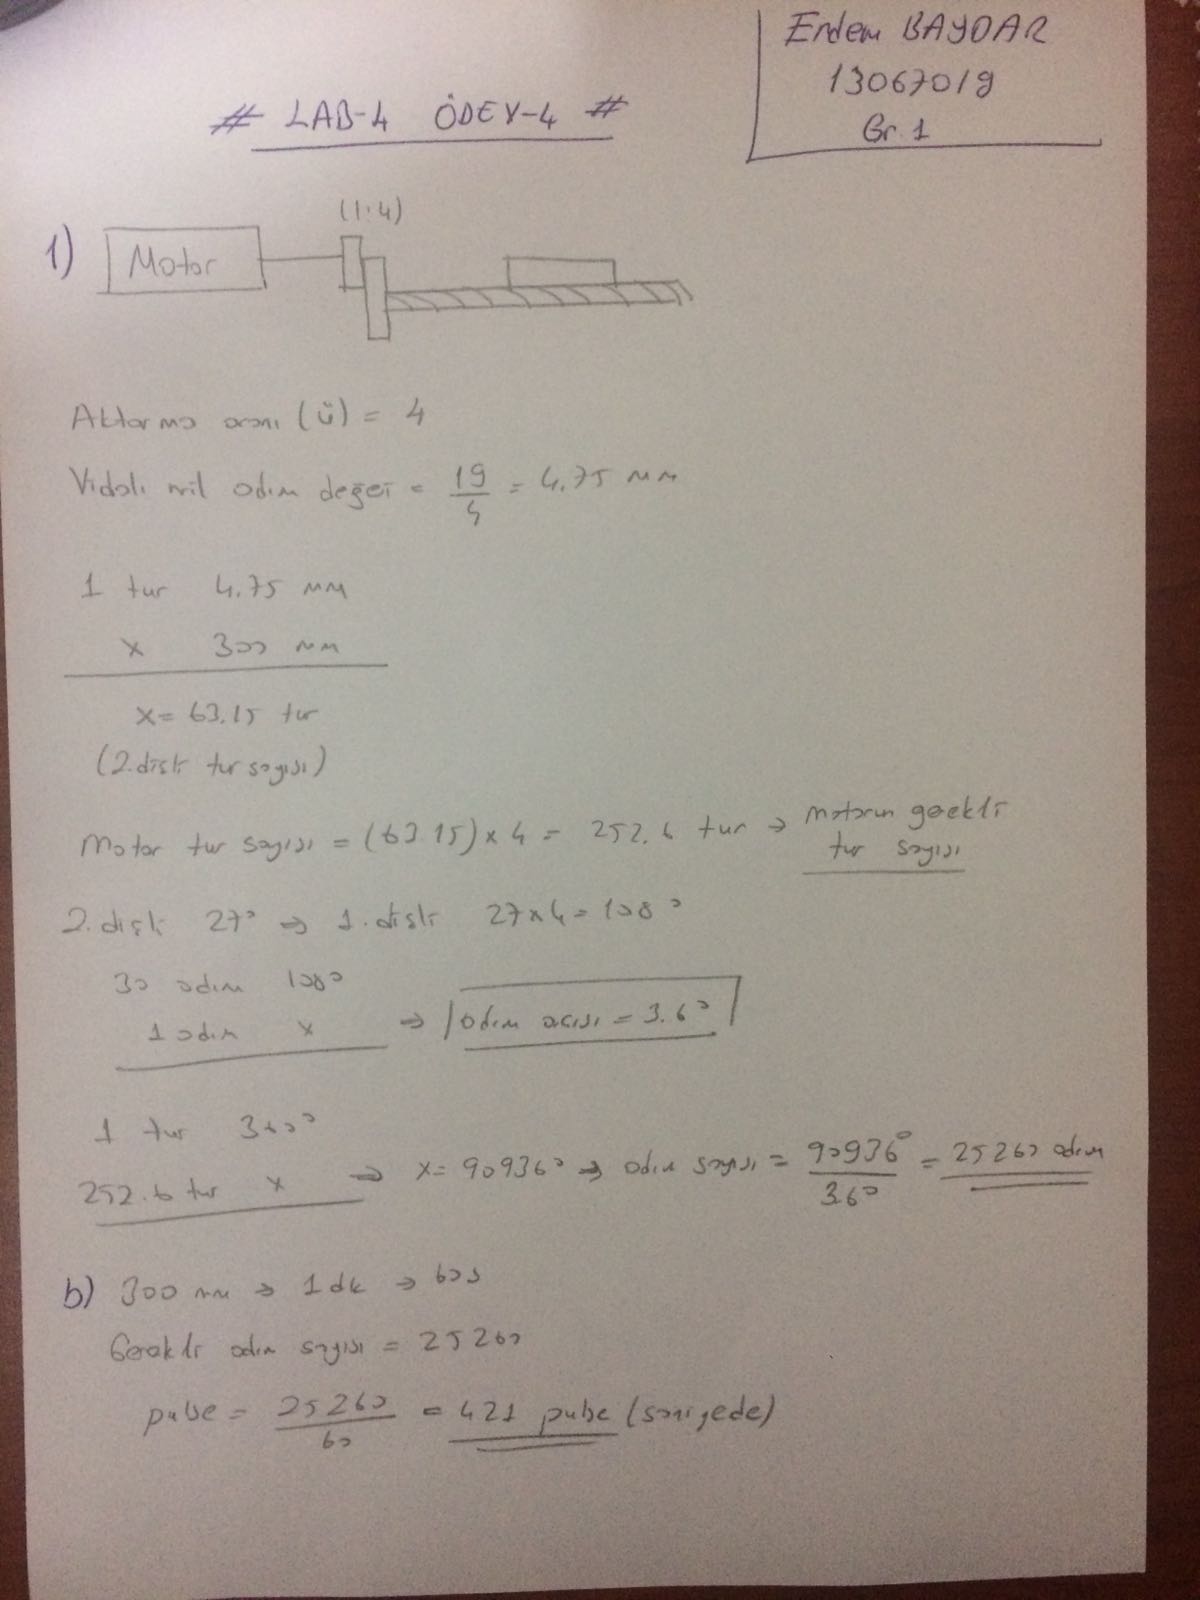 Erdem BAYDAR
13067019
Gr. 1
# LAB-4 ÖDEV-4 #
1) Motor
(1:4)
Aktarma oranı (ü) = 4
Vidalı mil adım değeri = 19/4 = 4.75 mm
1 tur 4.75 mm
x 300 mm
x = 63.15 tur
(2. dişli tur sayısı)
Motor tur sayısı = (63.15) x 4 = 252.6 tur → motorun gerekli
tur sayısı
2. dişli 27° ⇒ 1. dişli 27x4 = 108°
30 adım 108°
1 adım x ⇒ adım açısı = 3.6°
1 tur 360°
252.6 tur x ⇒ x = 90936° ⇒ adım sayısı = 90936°/3.6° = 25260 adım
b) 300 mm → 1 dk → 60s
Gerekli adım sayısı = 25260
pulse = 25260/60 = 421 pulse (saniyede)